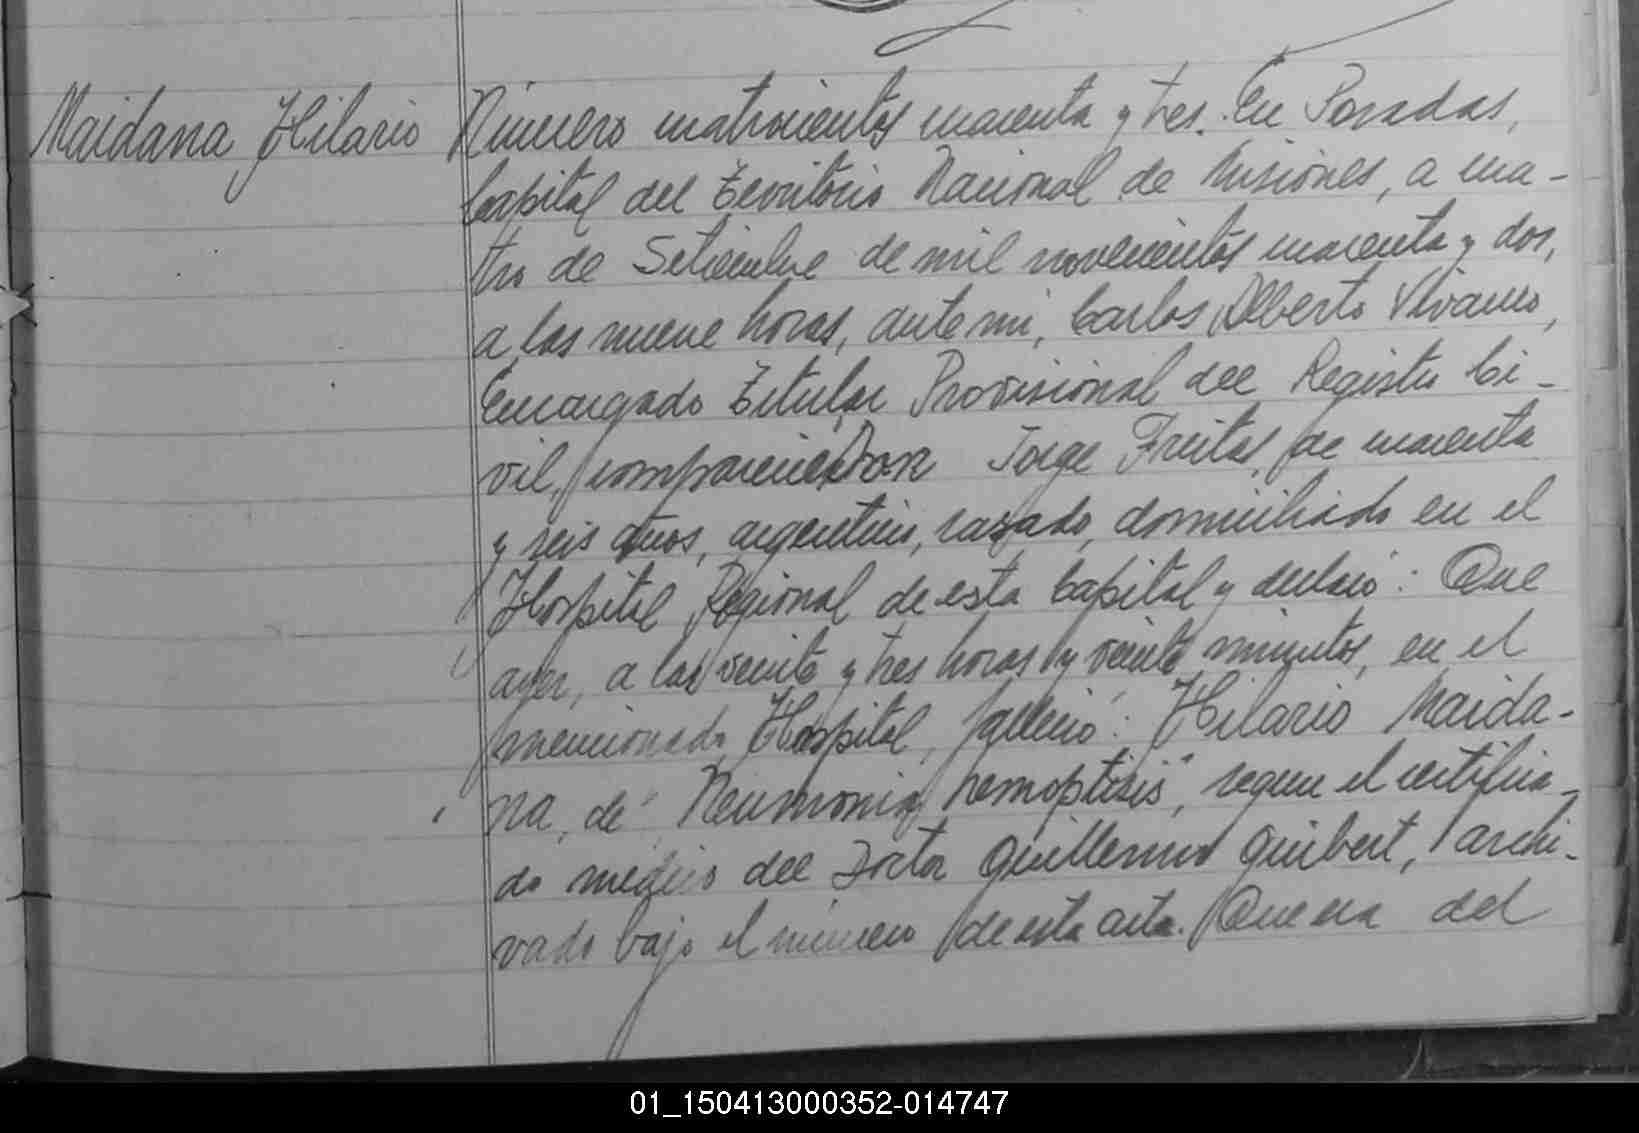 Maidana Hilario
Número cuatrocientos cuarenta y tres. En Posadas,
Capital del Territorio Nacional de Misiones, a cua-
tro de Setiembre de mil novecientos cuarenta y dos,
a las nueve horas, ante mi, Carlos Alberto Vivanco,
Encargado Titular Provisional del Registro Ci-
vil, comparecio Don Jorge Freitas, de cuarenta
y seis años, argentino, casado, domiciliado en el
Hospital Regional de esta Capital y declaró: Que
ayer, a las veinte y tres horas y veinte minutos, en el
mencionado Hospital, falleció: Hilario Maida-
na, de "Neumonia hemoptisis", segun el certifica-
do médico del Doctor Guillermo Guibert, archi-
vado bajo el número de esta acta. Que era del
01_150413000352-014747